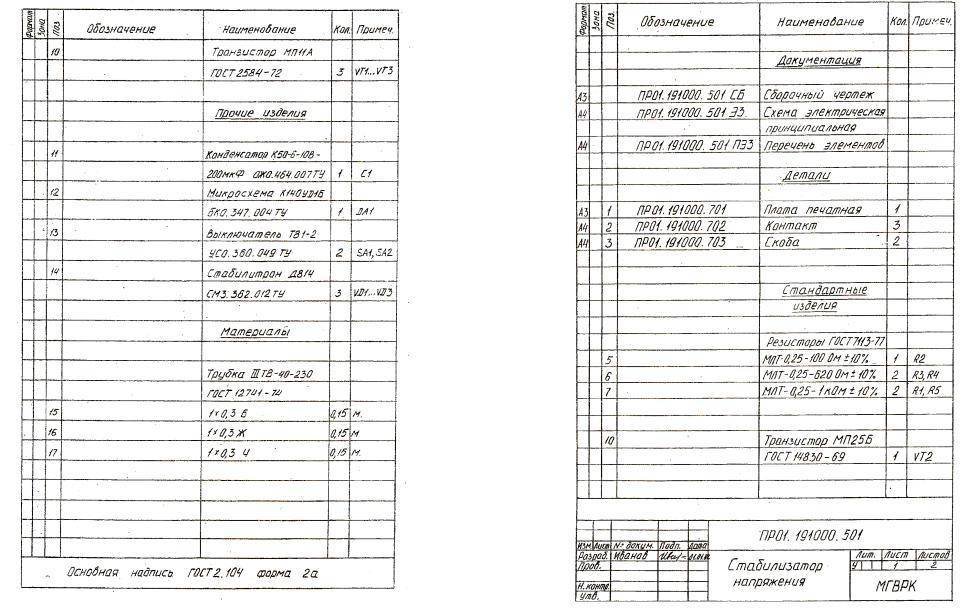 Формат Зона Поз. Обозначение Наименование Кол. Примеч.
10 Транзистор МП11А
ГОСТ 2584-72 3 VT1...VT3
Прочие изделия
11 Конденсатор К50-6-10В-
200мкФ ОЖ0.464.007ТУ 1 C1
12 Микросхема К140УД1Б
бК0.347.004 ТУ 1 DA1
13 Выключатель ТВ1-2
УС0.360.049 ТУ 2 SA1, SA2
14 Стабилитрон Д814
СМ3.362.012ТУ 3 VD1...VD3
Материалы
Трубка ШТВ-40-230
ГОСТ 12741-74
15 1×0,3 Б 0,15 м.
16 1×0,3 Ж 0,15 м
17 1×0,3 Ч 0,15 м.
Основная надпись ГОСТ 2.104 форма 2а
Формат Зона Поз. Обозначение Наименование Кол. Примеч.
Документация
А3 ПР01.191000.501 СБ Сборочный чертеж
А4 ПР01.191000.501 Э3. Схема электрическая
принципиальная
А4 ПР01.191000.501 ПЭ3 Перечень элементов
Детали
А3 1 ПР01.191000.701 Плата печатная 1
А4 2 ПР01.191000.702 Контакт 3
А4 3 ПР01.191000.703 Скоба 2
Стандартные
изделия
Резисторы ГОСТ7113-77
5 МЛТ-0,25-100 Ом ±10% 1 R2
6 МЛТ-0,25-620 Ом ±10% 2 R3, R4
7 МЛТ-0,25-1 кОм ±10% 2 R1, R5
10 Транзистор МП25Б
ГОСТ 14830-69 1 VT2
ПР01.191000.501
Изм Лист № докум. Подп. Дата
Разраб. Иванов
Пров.
Н.контр.
Утв.
Стабилизатор
напряжения
Лит. Лист Листов
У 1 2
МГВРК